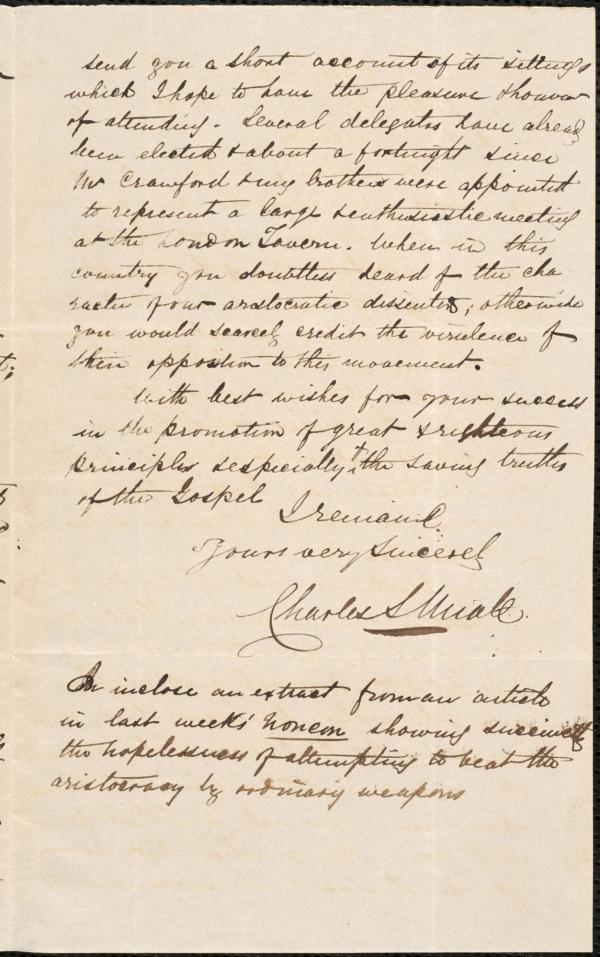 send you a short account of its sittings
which I hope to have the pleasure & honour
of attending. Several delegates have already
been elected & about a fortnight since
Mr Crawford & my brother were appointed
to represent a large & enthusiastic meeting
at the London Tavern. When in this
country you doubtless heard of the cha
racter of our aristocratic dissenters; otherwise
you would scarcely credit the virulence of
their opposition to this movement.
With best wishes for your success
in the promotion of great & righteous
principles & especially the saving truths
of the Gospel
I remain
Yours very sincerely
Charles S Miall
inclose an extract from an article
in last weeks' Noncon showing succinctly
the hopelessness of attempting to beat the
aristocracy by ordinary weapons